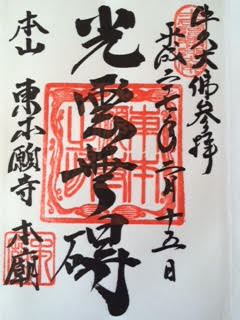 牛久大佛参拝
平成二七年一月十五日
光雲無碍
本山 東本願寺 本廟